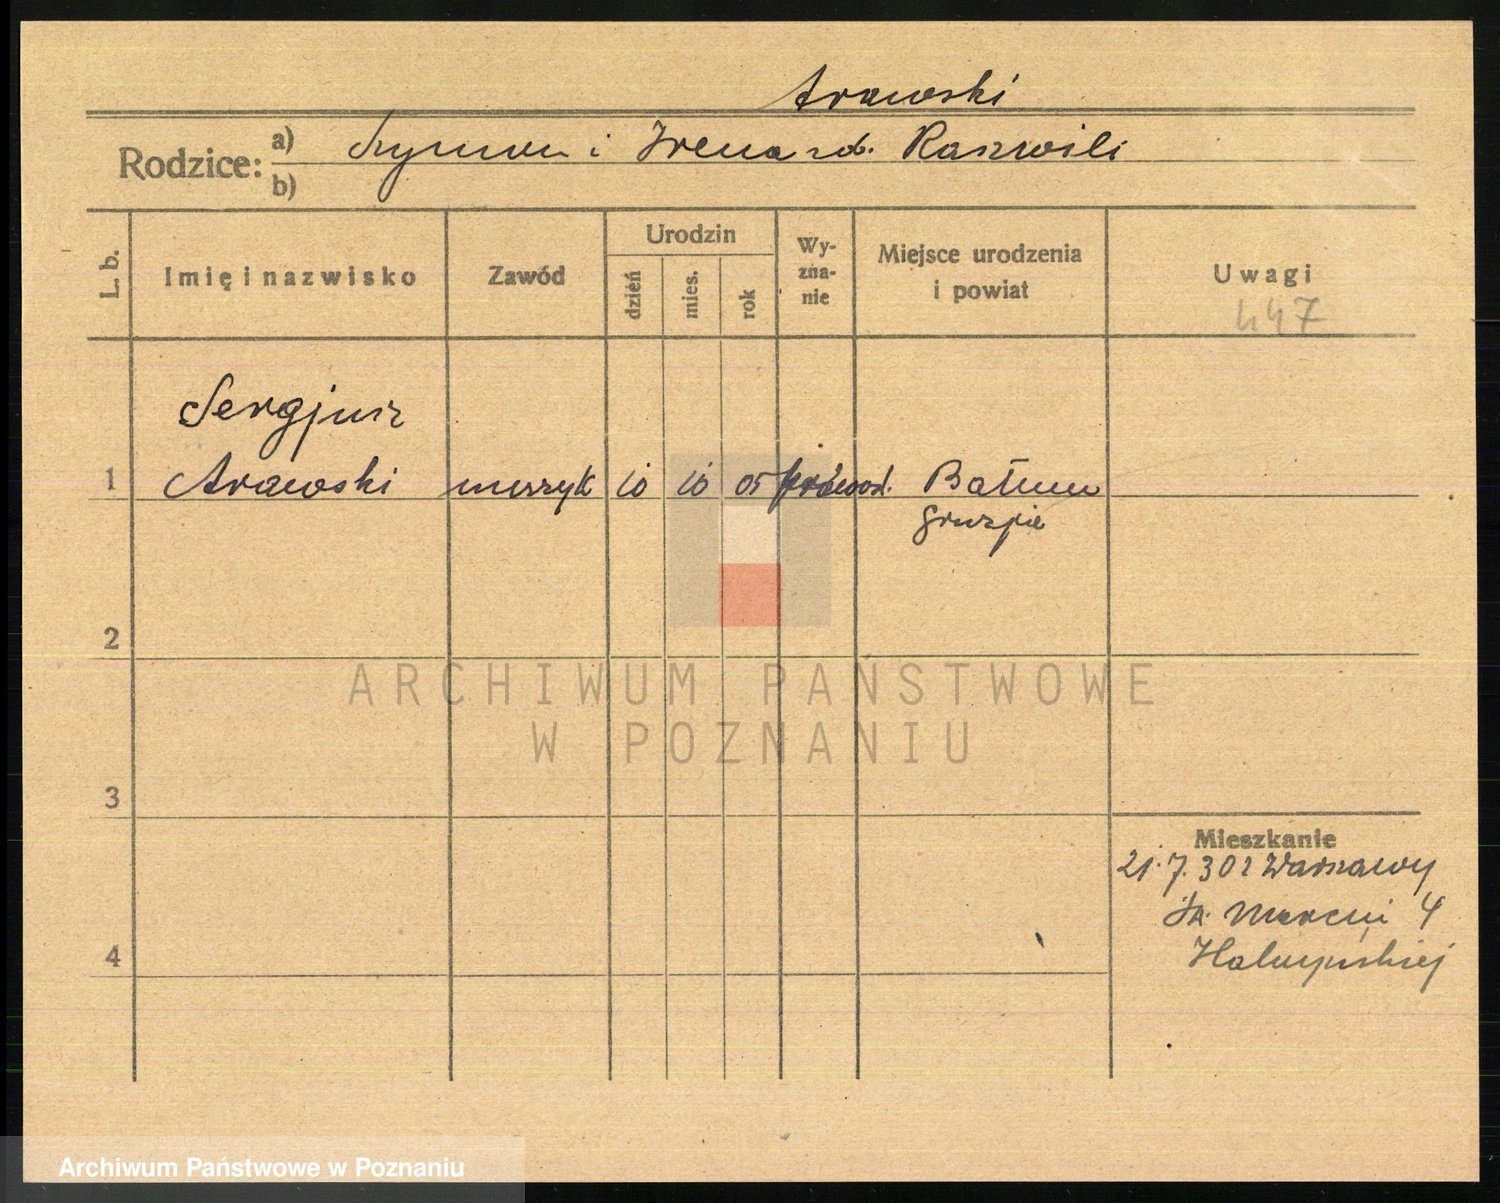 Arawski
Rodzice: a) Szymon i Irena zd. Raszwili
b)
L. b.
Imię i nazwisko
Zawód
Urodzin
dzień
mies.
rok
Wy-
zna-
nie
Miejsce urodzenia
i powiat
Uwagi
447
Sergjusz
1 Arawski muzyk 10 10 05 prawosł. Batum
Gruzja
2
3
4
Mieszkanie
21.7.30 z Warszawy
Św. Marcin 4
ARCHIWUM PAŃSTWOWE
W POZNANIU
Archiwum Państwowe w Poznaniu